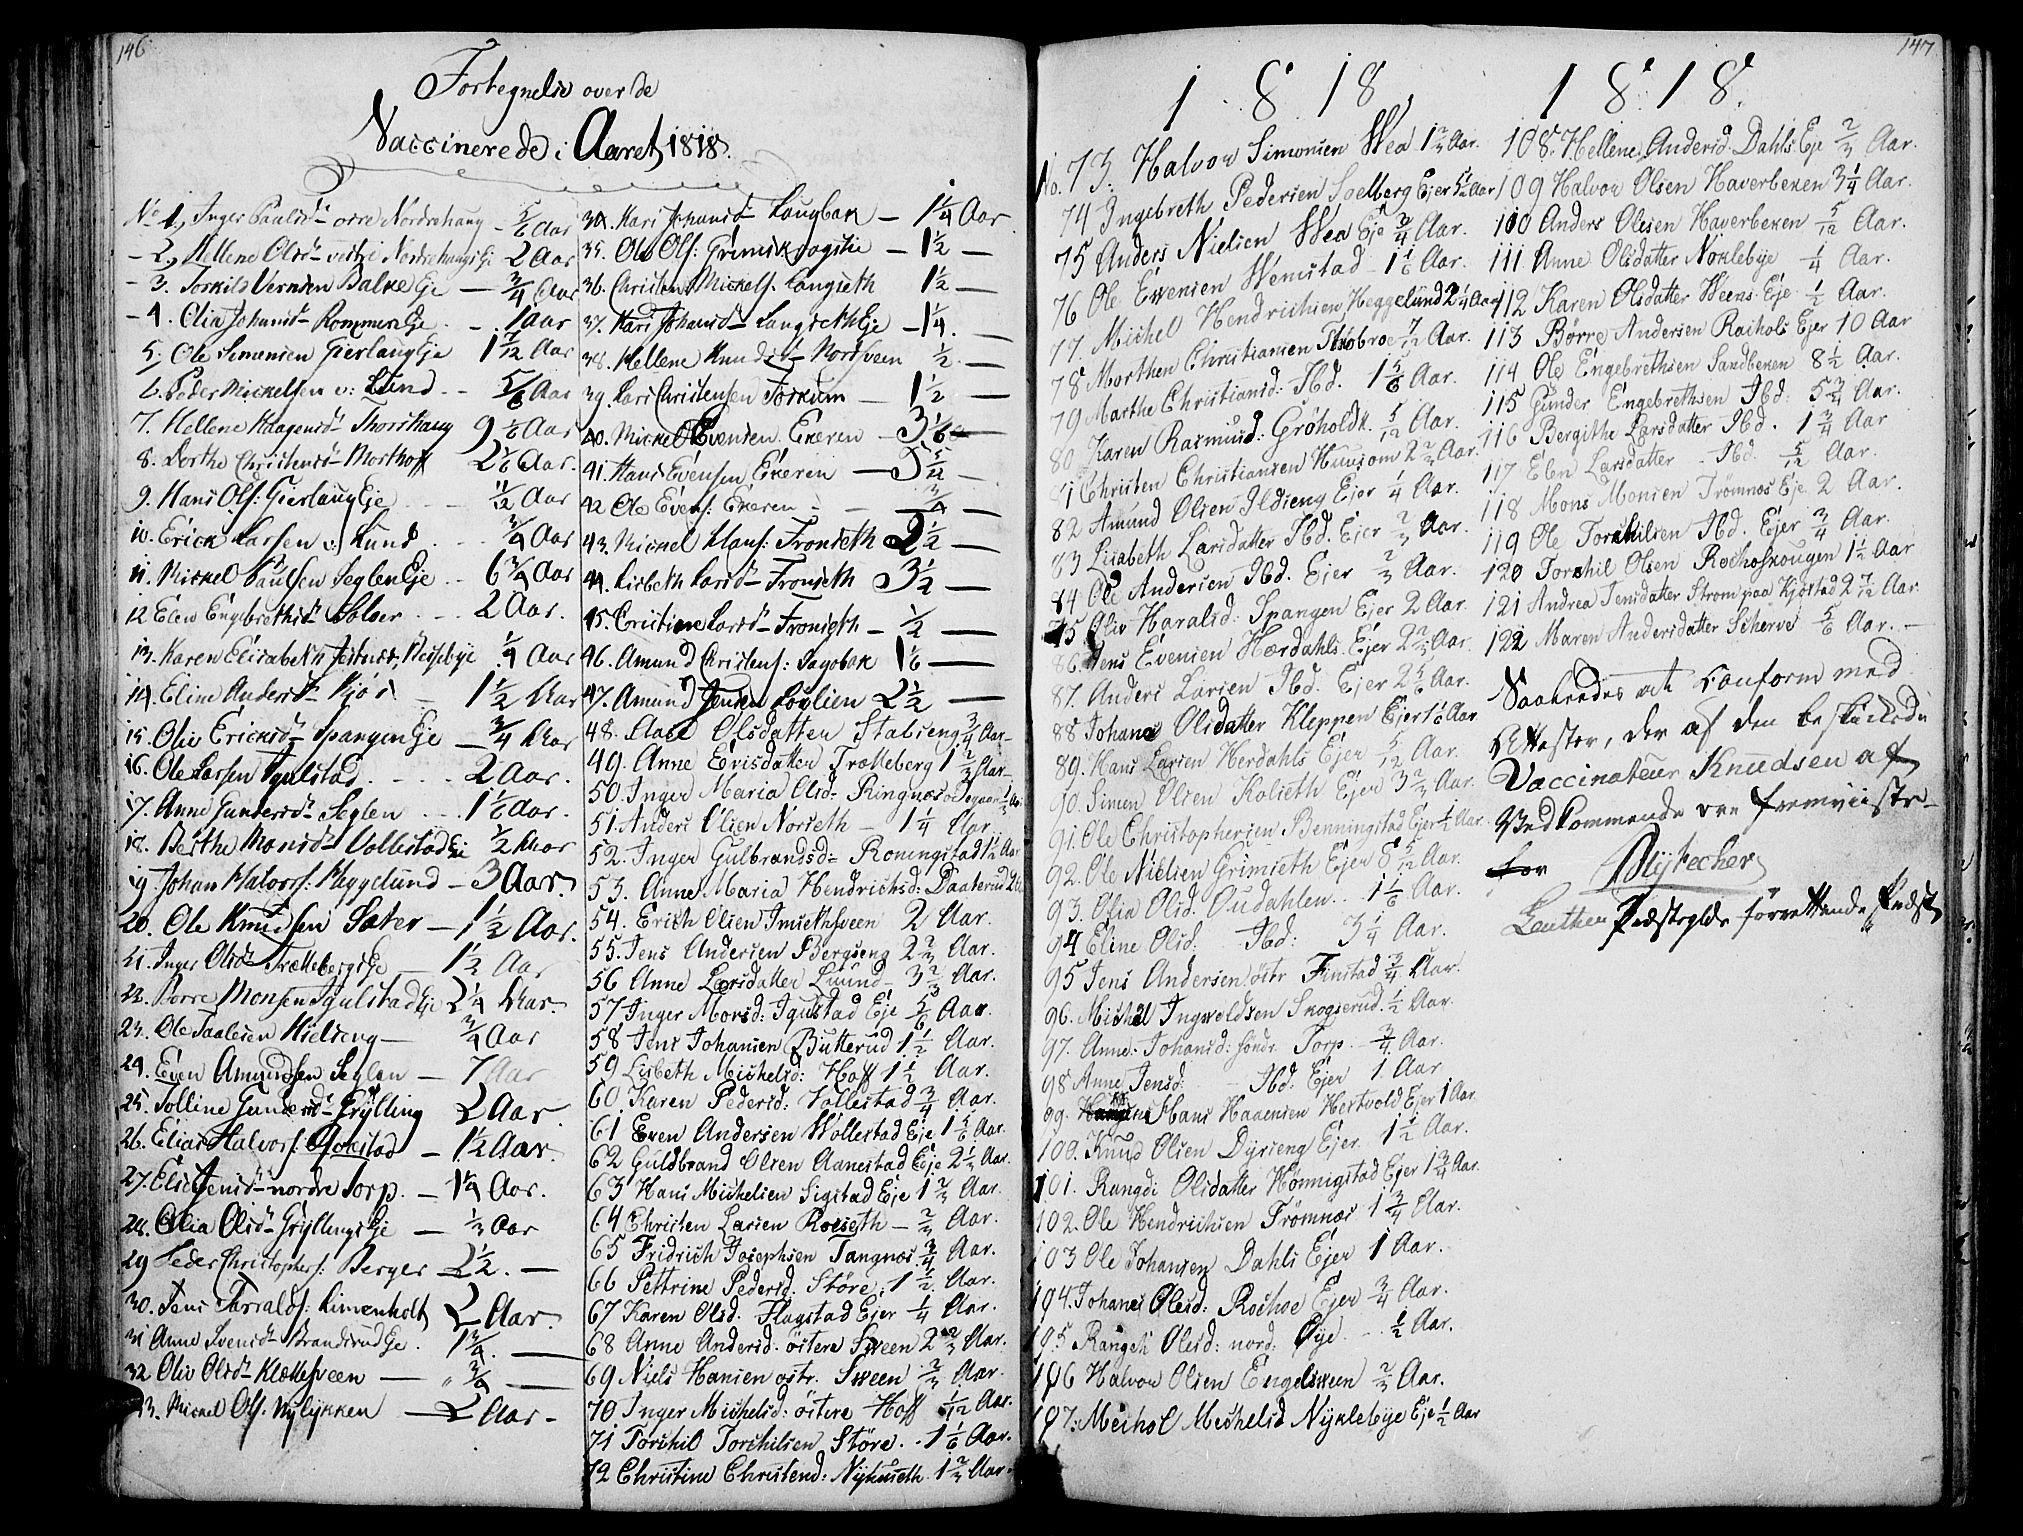 146
Fortegnelse over de
Vaccinerede i Aaret 1818.
No 1, Inger Paulsd. østre Nordrehaug - 5/6 Aar
- 2, Hellene Olsd. vestre Nordrehaugs Eje 2 Aar
- 3. Torkils Balke Eje - 3/4 Aar
- 4. Olia Johansd. Rommen Eje - 1 Aar
5. Ole Simensen Gierlaug Eje 1 1/12 Aar
6. Peder Mickelsen v: Lund - 5/6 Aar
7. Hellene Haagensd. Thorshaug 9 1/6 Aar
8. Dorthe Christensd. Morthoff 2 1/6 Aar.
9. Hans Ols: Gierlaug Eje 11/12 Aar
10. Erick Larsen v: Lund 3/4 Aar
11. Mickel Paulsen Seglen Eje 6 3/4 Aar
12 Elen Engebrethsd. Solver 2 Aar.
13. Karen Elisabeth Messebye 1/4 Aar
14. Eline Andersd. Kjøs 1 1/2 Aar
15. Oliv Ericksd. Spangen Eje - 3/4 Aar
16. Ole Larsen Igulstad 2 Aar.
17. Anne Gundersd. Seglen 1 1/6 Aar.
18. Berthe Monsd. Vollestad Eje 1/2 Aar
19. Johan Halvors: Heggelund - 3 Aar
20. Ole Knudsen Sæter - 1 1/2 Aar.
21. Inger Olsd. Trætteberg Eje - 1 1/2 Aar
22. Børre Monsen Igulstad Eje 2 1/4 Aar.
23. Ole Paalesen Kielseng - 3/4 Aar
24. Even Amundsen Seglen - 7 Aar
25. Tolline Gundersd. Grylling 2 Aar
26. Elias Halvors: Gokstad - 1 1/2 Aar.
27. Elie Jensd. nordre Torp. - 1 1/4 Aar.
28. Olia Olsd. Gryllings Eje - 1/3 Aar
29 Peder Christophers: Berger 2 1/2. -
30. Jens Haralds: Limenholt 2 Aar.
31 Anne Svensd. Brandsrud Eje. 1 3/4. -
32 Oliv Olsd. Klættesveen - " 3/4 -
33. Mickel Ols: Nylykken - 2 Aar -
34. Kari Johansd. Laugbak - 1 1/4 Aar
35. Ole Ols: Grimskrogstie - 1 1/2 -
36. Christen Mickels. Langseth 1 1/2 -
37. Kari Johansd. Langseth Eje - 1 1/4. -
38. Hellene Knudsd. Nordsveen 1/2. -
39. Lars Christensen Torkum - 1 1/2 -
40. Mickel Evensen Ekeren - 3 1/6 -
41. Hans Evensen Ekeren - 5 5/12 -
42 Ole Evens: Ekeren - 3/4 -
43. Mickel Klaus: Tronseth 2 1/2 -
44. Lisbeth Larsd. Tronseth 3 1/2 -
45. Cristine Larsd. Tronseth - 1/2 -
46. Amund Christens: Sagbak 1 1/6 -
47. Amund Jensen Løvlien 2 1/2 -
48. Olsdatten Stabseng 3/4 Aar -
49. Anne Erisdatter Trætteberg 1 2/3 Aar
50. Inger Maria Olsd. Ringnæs 1/3 Aar
51. Anders Olsen Norseth - 1 1/4 Aar
52. Inger Gulbrandsd. Roningstad 1 1/2 Aar
53. Anne Maria Hendrichsd: Daaterud 2
54. Erich Olsen Imisethsveen 2 Aar.
55. Jens Andersen Bergseng 2 2/3 Aar.
56 Anne Larsdatter Luund - 3 2/3 Aar.
57 Inger Monsd: Igulstad Eje 5/6 Aar
58 Jens Johansen Butterud 1 1/2 Aar.
59 Lisbeth Michelsd: Hoff 1 1/2 Aar.
60 Karen Pedersd: Vollestad 3/4 Aar.
61 Even Andersen Wollestad Eje 1 5/6 Aar.
62 Guldbrand Olsen Aanestad Eje 2 1/3 Aar.
63 Hans Michelsen Sigstad Eje 1 2/3 Aar.
64 Christen Larsen Roeseth - 2/3 Aar.
65 Fridrich Josephsen Tangnæs 3/4 Aar.
66 Pettrine Pedersd. Støre, 1 1/2 Aar.
67 Karen Olsd. Flagstad Ejer 1/4 Aar.
68 Anne Andersd. østere Sveen 2 2/3 Aar.
69 Niels Hansen østr. Sveen 2/3 Aar.
70 Inger Michelsd: østere Hoff 1/12 Aar.
71 Torchil Torchilsen Støre. - 1 1/6 Aar.
72 Christine Christend: Nyhuseth. 1 2/3 Aar
147
1818
No. 73. Halvor Simonsen Wea 1 2/3 Aar.
74 Ingebreth Pedersen Soelberg Ejer 5 1/2 Aar
75 Anders Nielsen Wea Eje 2/4 Aar.
76 Ole Evensen Wemstad - 1 1/6 Aar.
77. Michel Hendrichsen Heggelund 2 1/4 Aar
78 Morthen Christiansen 7/12 Aar.
79 Marthe Christiansd: Ibd. 1 5/6 Aar.
80 Karen Rasmusd: Grøholdt. 5/12 Aar.
81 Christen Christiansen Huusom 2 2/3 Aar.
82 Amund Olsen Ildseng Ejer 1/4 Aar.
83 Lisabeth Larsdatter Ibd. Ejer 2/3 Aar.
84 Ole Andersen Ibd. Ejer 2/3 Aar.
85 Oliv Haralsd: Spangen Ejer 2 Aar.
86 Jens Evensen Hærdahls Ejer 2 2/3 Aar.
87. Anders Larsen Ibd. Ejer 2 5/6 Aar.
88 Johane Olsdatter Kleppen Ejer 1 1/6 Aar
89. Hans Larsen Herdahls Ejer 5/12 Aar.
90. Simen Olsen Kolseth Ejer 3 2/3 Aar.
91. Ole Christophersen Benningstad Ejer 1/2 Aar.
92. Ole Nielsen Grimseth Ejer 6 5/12 Aar.
93. Olia Olsd. Oudahlen. 1 1/6 Aar.
94 Eline Olsd: Ibd: 3 1/4 Aar.
95 Jens Andersen østr Finstad 3/4 Aar.
96. Michel Ingvoldsen Skogserud. 1/2 Aar.
97. Anne Johansd: søndr Torp. 3/4 Aar.
98 Anne Jensd: - Ibd: Ejer 1 Aar
99. Hans Haaensen Hertvold Ejer 1 Aar
100. Knud Olsen Dyrseng Ejer 1 1/2 Aar.
101. Rangdi Olsdatter Hønnigstad Ejer 1 3/4 Aar.
102. Ole Hendrichsen Trømnæs 1 3/4 Aar.
103 Ole Johansen Dahls Ejer 1 Aar.
104. Johanes Olesd: Rochoe Ejer 3/4 Aar.
105. Rangdi Olesd: nord: Øye. - 1/2 Aar.
106 Halvor Olsen Engelsveen 2/3 Aar.
107. Meihol Mechelsd Nyklebye Eje 1/2 Aar
1818.
108. Hellene Andersd. Dahls Eje 2/3 Aar.
109 Halvor Olsen Haverbeken 3 1/4 Aar.
110 Anders Olesen Haverbeken 5/12 Aar.
111 Anne Olsdatter Nøklebye 1/4 Aar.
112 Karen Olsdatter Weens Eje 1/2 Aar.
113 Børre Andersen Raihols Ejer 10 Aar
114 Ole Engebrethsen Sandbeken 8 1/2 Aar.
115 Gunder Engebrethsen Ibd: 5 3/4 Aar.
116 Bergithe Larsdatter Ibd. 1 3/4 Aar
117 Elen Larsdatter - Ibd. 5/12 Aar.
118 Mons Monsen Trømnæs Eje 2 Aar.
119 Ole Torchilsen Ibd. Ejer 3/4 Aar.
120 Torchil Olsen Rochoskougen 1 1/2 Aar
121 Andrea Jensdatter Strom paa Kjøstad 2 7/12 Aar.
122 Maren Andersdatter Scherve 5/6 Aar. -
Saaledes at conform med
Attester, der af den beskikkede
Vaccinateur Knudsen af
Vedkommende ere fremviiste
for Blytecher
Leuthen Præstegilds forrettende Præst